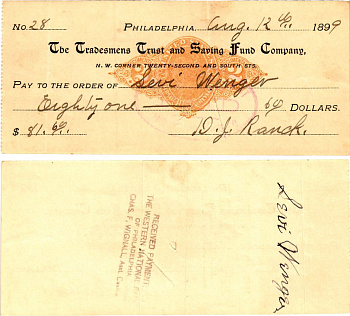 No. 28 Philadelphia, Aug. 12 1899
The Tradesmens Trust and Saving Fund Company,
N. W. CORNER TWENTY-SECOND AND SOUTH STS.
PAY TO THE ORDER OF Levi Wenger
Eighty one — DOLLARS.
$ 81. D. J. Ranck.
RECEIVED PAYMENT
THE WESTERN NATIONAL
OF PHILADELPHIA
CHAS. F. WIGNALL, Asst. Cashier
Levi Wenger